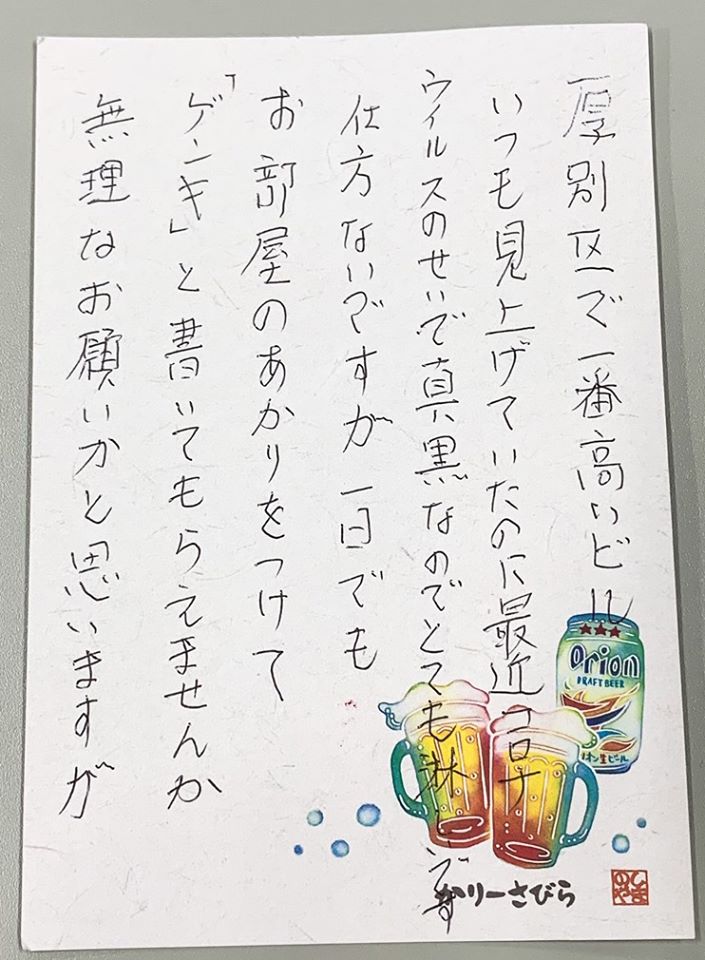 厚別区で一番高いビル
いつも見上げていたのに最近コロナ
ウィルスのせいで真黒なのでとても淋しいです
仕方ないですが一日でも
お部屋のあかりをつけて
「ゲンキ」と書いてもらえませんか
無理なお願いかと思いますが
orion
DRAFT BEER
オン生ビール
かりーさびら
ひま
のや